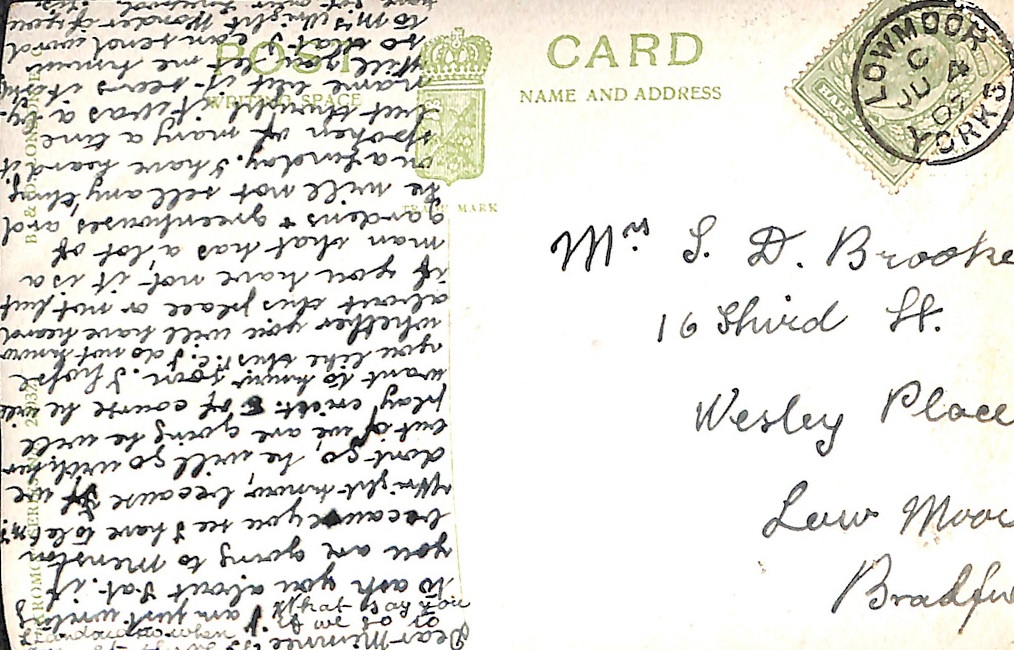 POST CARD
WRITING SPACE
NAME AND ADDRESS
TRADE MARK
LOWMOOR
C
JU 4
07
YORKS
HALF
Mrs S. D. Brooke
16 Third St.
Wesley Place
Low Moor
Dear Minnie
I am just writing
to ask you about Sat. if
you are going to Menston
because you see I have to let Mr
Wright know, because if we
dont go, he will go with her
but if we are going he will
play crict. of course he will
want to know soon. I hope
you like this P.C. I do not know
whether you will have heard
about this place or not, but
if you have not, it is a
man that has a lot of
gardens & greenhouses and
he will not sell anything
on a Sunday. I have heard it
spoken of many a time
but thought it was a by-
name but it seems it
Will you let me know
so that I can send word
to Mr Wright. Wonder if you
have got over
What say you
If we go to
when